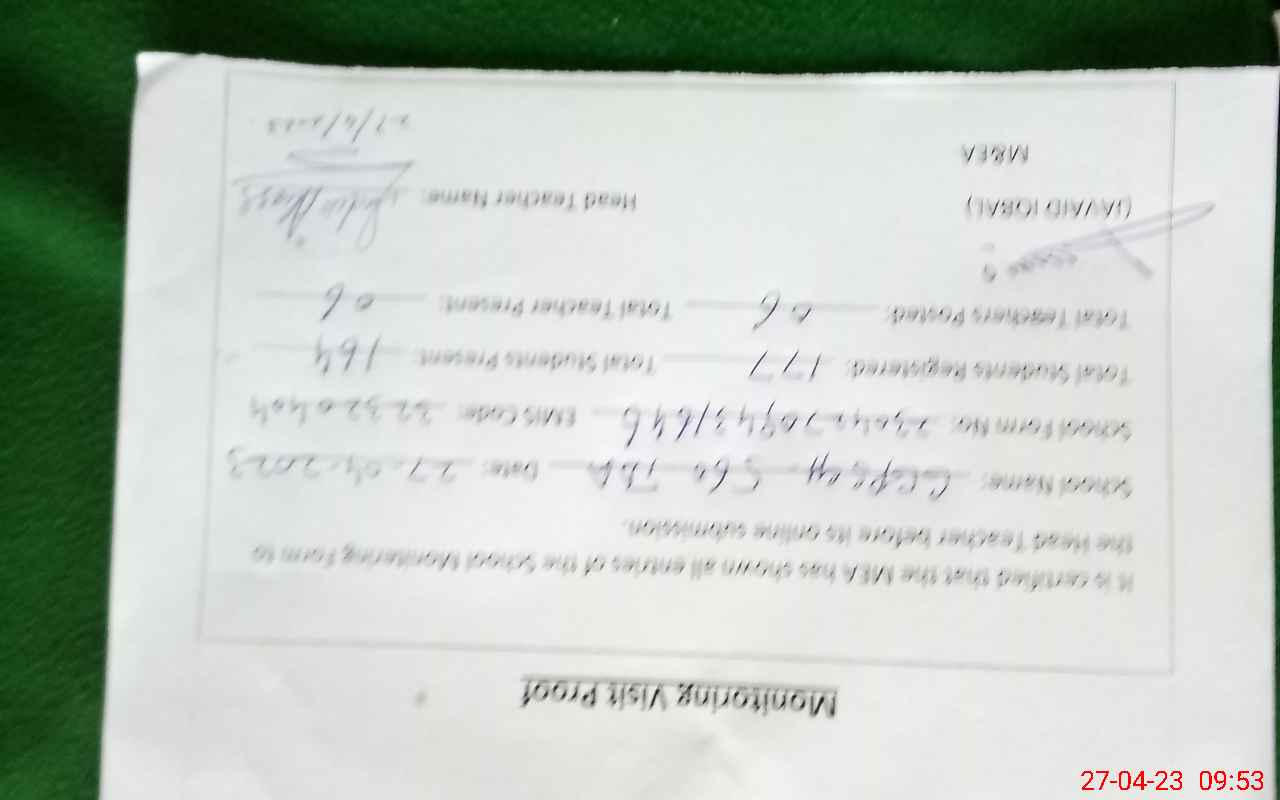 Monitoring Visit Proof
It is certified that the MEA has shown all entries of the School Monitoring Form to
the Head Teacher before its online submission.
School Name: 560 Date: 27-04-2023
School Form No: EMIS Code: 32320404
Total Students Registered: 177 Total Students Present: 164
Total Teachers Posted: 06 Total Teacher Present: 06
(JAVAID IQBAL) Head Teacher Name:
M&EA 27/4/2023
27-04-23 09:53